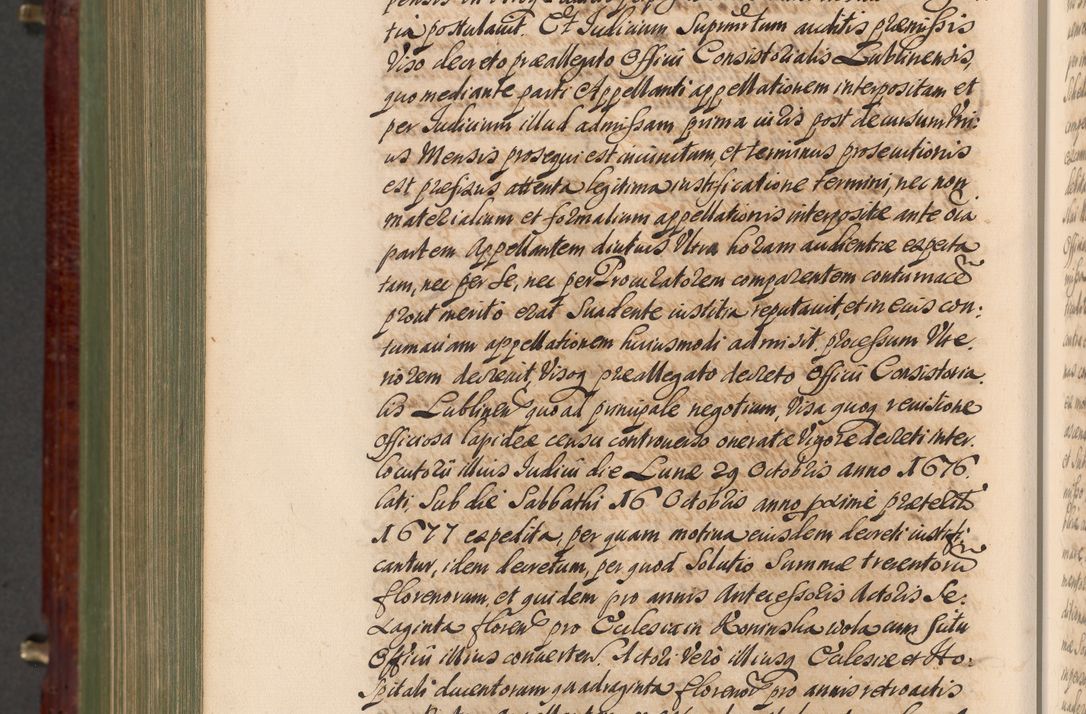 tia postulavit. Et Iudicium Supremum auditis præmissis
Viso decreto præallegato Officii Consistorialis Lublinensis,
quo mediante parti Appellanti appellationem interpositam et
per Iudicium illud admissam prima iuris post decursum
us Mensis prosequi est iniunctum, et terminus prosecutionis
est præfixus attenta legitima iustificatione termini, nec non
materialium et formalium appellationis interpositæ ante oîa
partem Appellantem diutius Ultra horam audientiæ expecta
tam, nec per Se, nec per Procuratorem comparentem contumacē
prout merito erat Suadente iustitia reputavit, et in eius con:
tumaciam appellationem huiusmodi admisit. processum Ulte,
riorem decrevit, Visoq præallegato decreto Officii Consistoria,
lis Lublinen quo ad principale negotium, Visa quoq revisione
officiosa lapideæ censu controverso oneratæ Vigore decreti inter,
locutorii illius Iudicii die Lunæ 29 Octobris anno 1676
lati, Sub die Sabbathi 16 Octobris anno proximè præteriti
1677 expedita, per quam motiva eiusdem decreti iustifi,
cantur, idem decretum, per quod Solutio Summæ trecentorū
florenorum, et quidem pro annis Antecessoris Actoris Se,
xaginta floren pro Ecclesia in Koninska wola cum Scitu
Officii illius converten. Actori Verò illiusq Ecclesiæ et Ho,
spitali ducentorum quadraginta floren pro annis retroactis